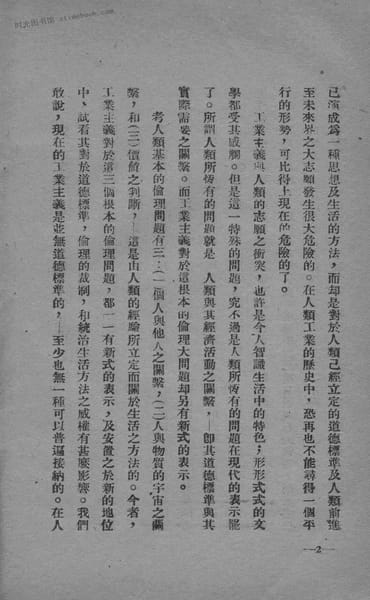 时光图书馆 · atimebook.com
已演成爲一種思想及生活的方法，而却是對於人類已經立定的道德標準及人類前進
至未來界之大志願發生很大危險的。在人類工業的歷史中，恐再也不能尋得一個平
行的形勢，可比得上現在的危險的了。
工業主義與人類的志願之衝突，也許是今人智識生活中的特色；形形式式的文
學都受其感觸。但是這一特殊的問題，究不過是人類所恆有的問題在現代的表示罷
了。所謂人類所恆有的問題就是　人類與其經濟活動之關繫，—卽其道德標準與其
實際需要之關繫。而工業主義對於這根本的倫理大問題却另有新式的表示。
考人類基本的倫理問題有三，(一)個人與他人之關繫，(二)人與物質的宇宙之關
繫，和(三)價値之判斷，—這是由人類的經驗所立定而關於生活之方法的。今者，
工業主義對於這三個根本的倫理問題，都一一有新式的表示，及安置之於新的地位
中，試看其對於道德標準，倫理的裁制，和統治生活方法之威權有甚麽影響。我們
敢說，現在的工業主義是並無道德標準的，—至少也無一種可以普遍接納的。在人
—2—